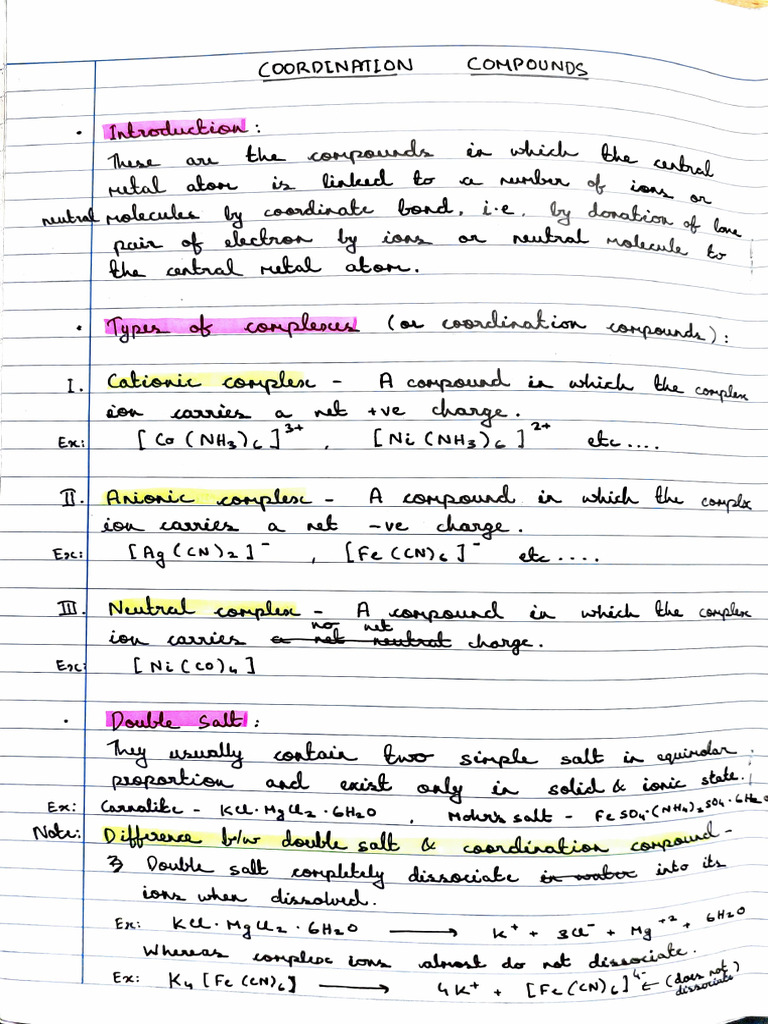 COORDINATION COMPOUNDS
• Introduction :
These are the compounds in which the central
metal atom is linked to a number of ions or
neutral molecules by coordinate bond, i.e. by donation of lone
pair of electron by ions or neutral molecule to
the central metal atom.
• Types of complexes (or coordination compounds) :
I. Cationic complex - A compound in which the complex
ion carries a net +ve charge.
Ex: [Co(NH3)6]3+ , [Ni(NH3)6]2+ etc....
II. Anionic complex - A compound in which the complx
ion carries a net -ve charge.
Ex: [Ag(CN)2]- , [Fe(CN)6]- etc....
III. Neutral complex - A compound in which the complex
ion carries a net neutral no net charge.
Ex: [Ni(CO)4]
• Double Salt :
They usually contain two simple salt in equimolar
proportion and exist only in solid & ionic state.
Ex: Carnalite - KCl·MgCl2·6H2O , Mohr's salt - FeSO4·(NH4)2SO4·6H2O
Note: Difference b/w double salt & coordination compound -
Double salt completely dissociate in water into its
ions when dissolved.
Ex: KCl·MgCl2·6H2O ⟶ K+ + 3Cl- + Mg+2 + 6H2O
Whereas complex ions almost do not dissociate.
Ex: K4[Fe(CN)6] ⟶ 4K+ + [Fe(CN)6]4- ← (does not dissociate)